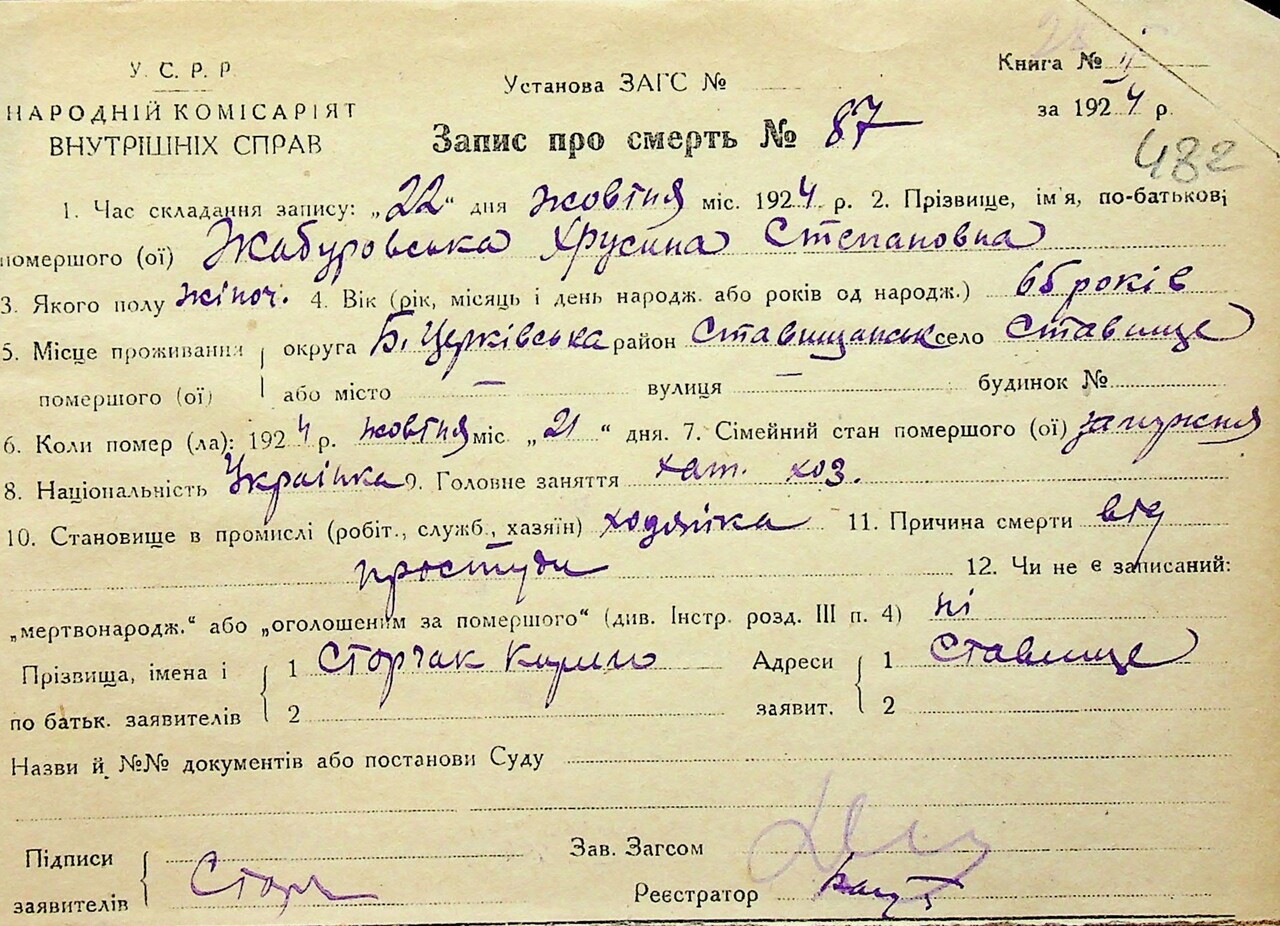 У. С. Р. Р.
НАРОДНІЙ КОМІСАРІЯТ
ВНУТРІШНІХ СПРАВ
Установа ЗАГС №
Запис про смерть № 87
Книга № II
за 1924 р.
482
1. Час складання запису: „22“ дня жовтня міс. 1924 р. 2. Прізвище, ім'я, по-батькові
помершого (ої) Жабуровська Хрусина Степановна
3. Якого полу жіноч. 4. Вік (рік, місяць і день народж. або років од народж.) 65 років
5. Місце проживання помершого (ої) округа Б. Церківська район Ставищанськ село Ставище
або місто — вулиця — будинок №
6. Коли помер (ла): 1924 р. жовтня міс. „21“ дня. 7. Сімейний стан помершого (ої) замужня
8. Національність Українка 9. Головне заняття хат. хоз.
10. Становище в промислі (робіт., служб., хазяїн) ходяйка 11. Причина смерти від
простуди 12. Чи не є записаний:
„мертвонародж.“ або „оголошеним за помершого“ (див. Інстр. розд. III п. 4) ні
Прізвища, імена і по батьк. заявителів 1 Сторчак Кирило Адреси заявит. 1 Ставище
2 2
Назви й №№ документів або постанови Суду
Підписи заявителів Стор
Зав. Загсом
Реєстратор